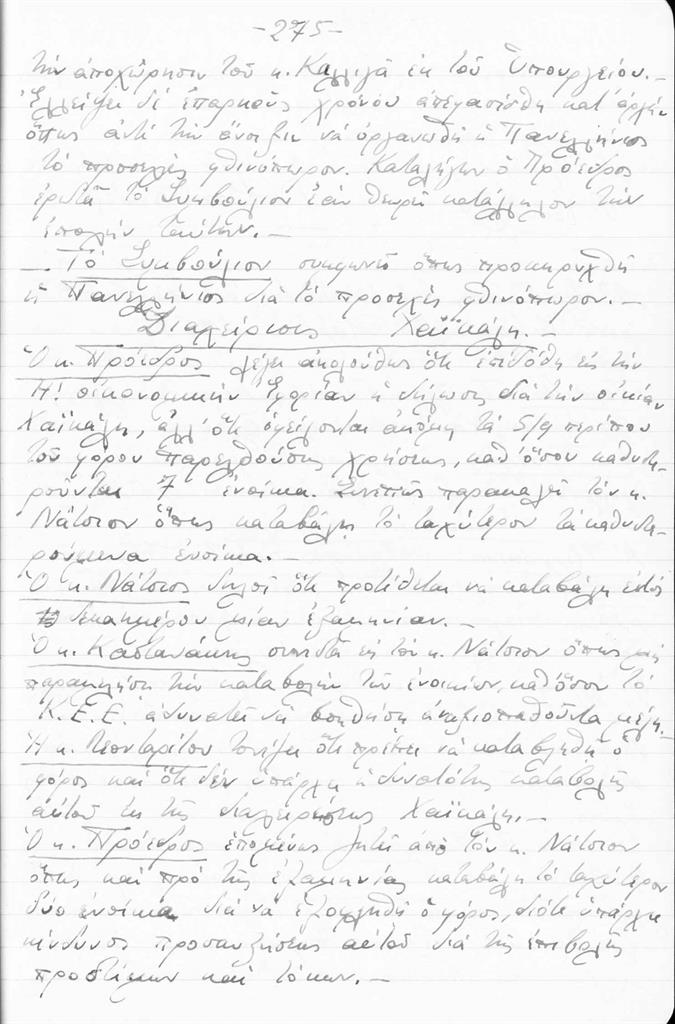 -275-
τὴν ἀποχώρησιν τοῦ κ. Καλλιγᾶ ἐκ τοῦ Ὑπουργείου.-
Ἐλλείψει δὲ ἐπαρκοῦς χρόνου ἀπεφασίσθη κατ' ἀρχὴν
ὅπως ἀντὶ τὴν ἄνοιξιν νὰ ὀργανωθῇ ἡ Πανελλήνιος
τὸ προσεχὲς φθινόπωρον. Καταλήγων ὁ Πρόεδρος
ἐρωτᾷ τὸ Συμβούλιον ἐὰν θεωρῇ κατάλληλον τὴν
ἐποχὴν ταύτην.-
- Τὸ Συμβούλιον συμφωνεῖ ὅπως προκηρυχθῇ
ἡ Πανελλήνιος διὰ τὸ προσεχὲς φθινόπωρον.-
Διαχείρισις Χαϊκάλη.-
Ὁ κ. Πρόεδρος λέγει ἀκολούθως ὅτι ἐπεδόθη εἰς τὴν
Η! οἰκονομικὴν Ἐφορίαν ἡ δήλωσις διὰ τὴν οἰκίαν
Χαϊκάλη, ἀλλ' ὅτι ὀφείλονται ἀκόμη τὰ 5/9 περίπου
τοῦ φόρου παρελθούσης χρήσεως, καθ' ὅσον καθυστε-
ροῦνται 7 ἐνοίκια. Συνεπῶς παρακαλεῖ τὸν κ.
Νάτσιον ὅπως καταβάλῃ τὸ ταχύτερον τὰ καθυστε-
ρούμενα ἐνοίκια.-
Ὁ κ. Νάτσιος δηλοῖ ὅτι προτίθεται νὰ καταβάλῃ ἐντὸς
δεκαημέρου μίαν ἑξαμηνίαν.-
Ὁ κ. Καστανάκης συνιστᾷ εἰς τὸν κ. Νάτσιον ὅπως μὴ
παραμελήσῃ τὴν καταβολὴν τῶν ἐνοικίων, καθ' ὅσον τὸ
Κ.Ε.Ε. ἀδυνατεῖ νὰ βοηθήσῃ ἀναξιοπαθοῦντα μέλη.-
Ἡ κ. Λεονταρίτου τονίζει ὅτι πρέπει νὰ καταβληθῇ ὁ
φόρος καὶ ὅτι δὲν ὑπάρχει ἡ δυνατότης καταβολῆς
αὐτοῦ ἐκ τῆς διαχειρίσεως Χαϊκάλη.-
Ὁ κ. Πρόεδρος ἑπομένως ζητεῖ ἀπὸ τὸν κ. Νάτσιον
ὅπως καὶ πρὸ τῆς ἑξαμηνίας καταβάλῃ τὸ ταχύτερον
δύο ἐνοίκια διὰ νὰ ἐξοφληθῇ ὁ φόρος, διότι ὑπάρχει
κίνδυνος προσαυξήσεως αὐτοῦ διὰ τῆς ἐπιβολῆς
προστίμων καὶ τόκων.-